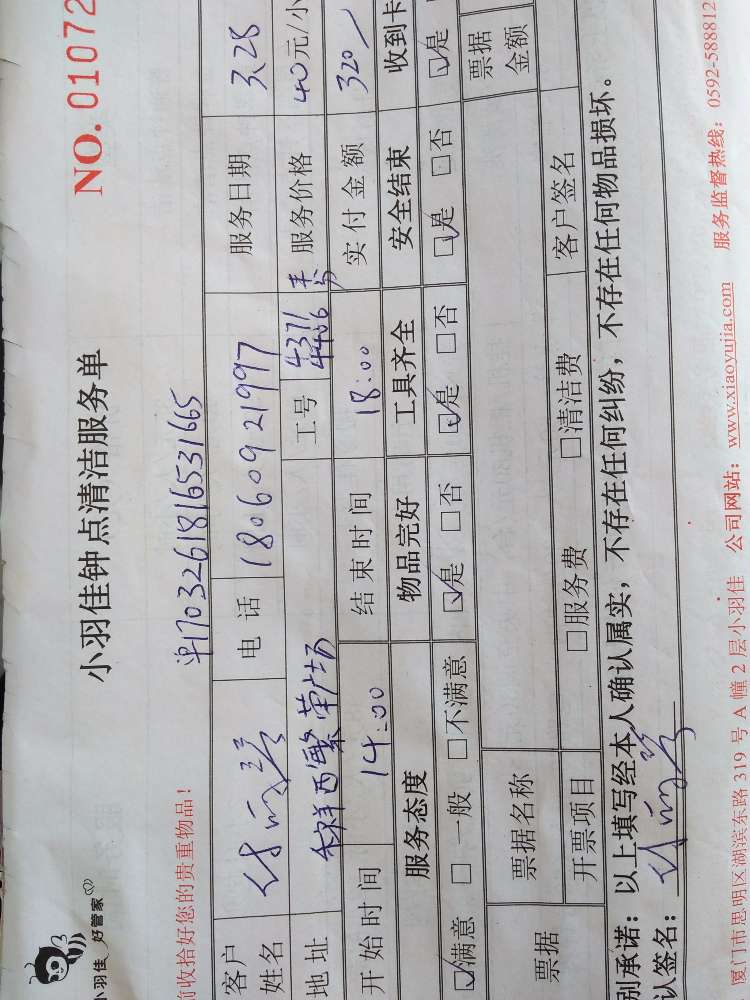 小羽佳 好管家
小羽佳钟点清洁服务单
NO. 01072
前收拾好您的贵重物品！
单170326181653 1665
客户姓名 电话 18060921997 服务日期 3.28
地址 禾祥西繁荣广场 工号 4371 4406 服务价格 40元/小
开始时间 14:00 结束时间 18:00 实付金额 320
服务态度 物品完好 工具齐全 安全结束 收到卡
☑满意 □一般 □不满意 ☑是 □否 ☑是 □否 ☑是 □否 ☑是
票据 票据名称 票据金额
开票项目 □服务费 □清洁费 客户签名
别承诺：以上填写经本人确认属实，不存在任何纠纷，不存在任何物品损坏。
认签名：
厦门市思明区湖滨东路 319 号 A 幢 2 层小羽佳 公司网站：www.xiaoyujia.com 服务监督热线：0592-5888812